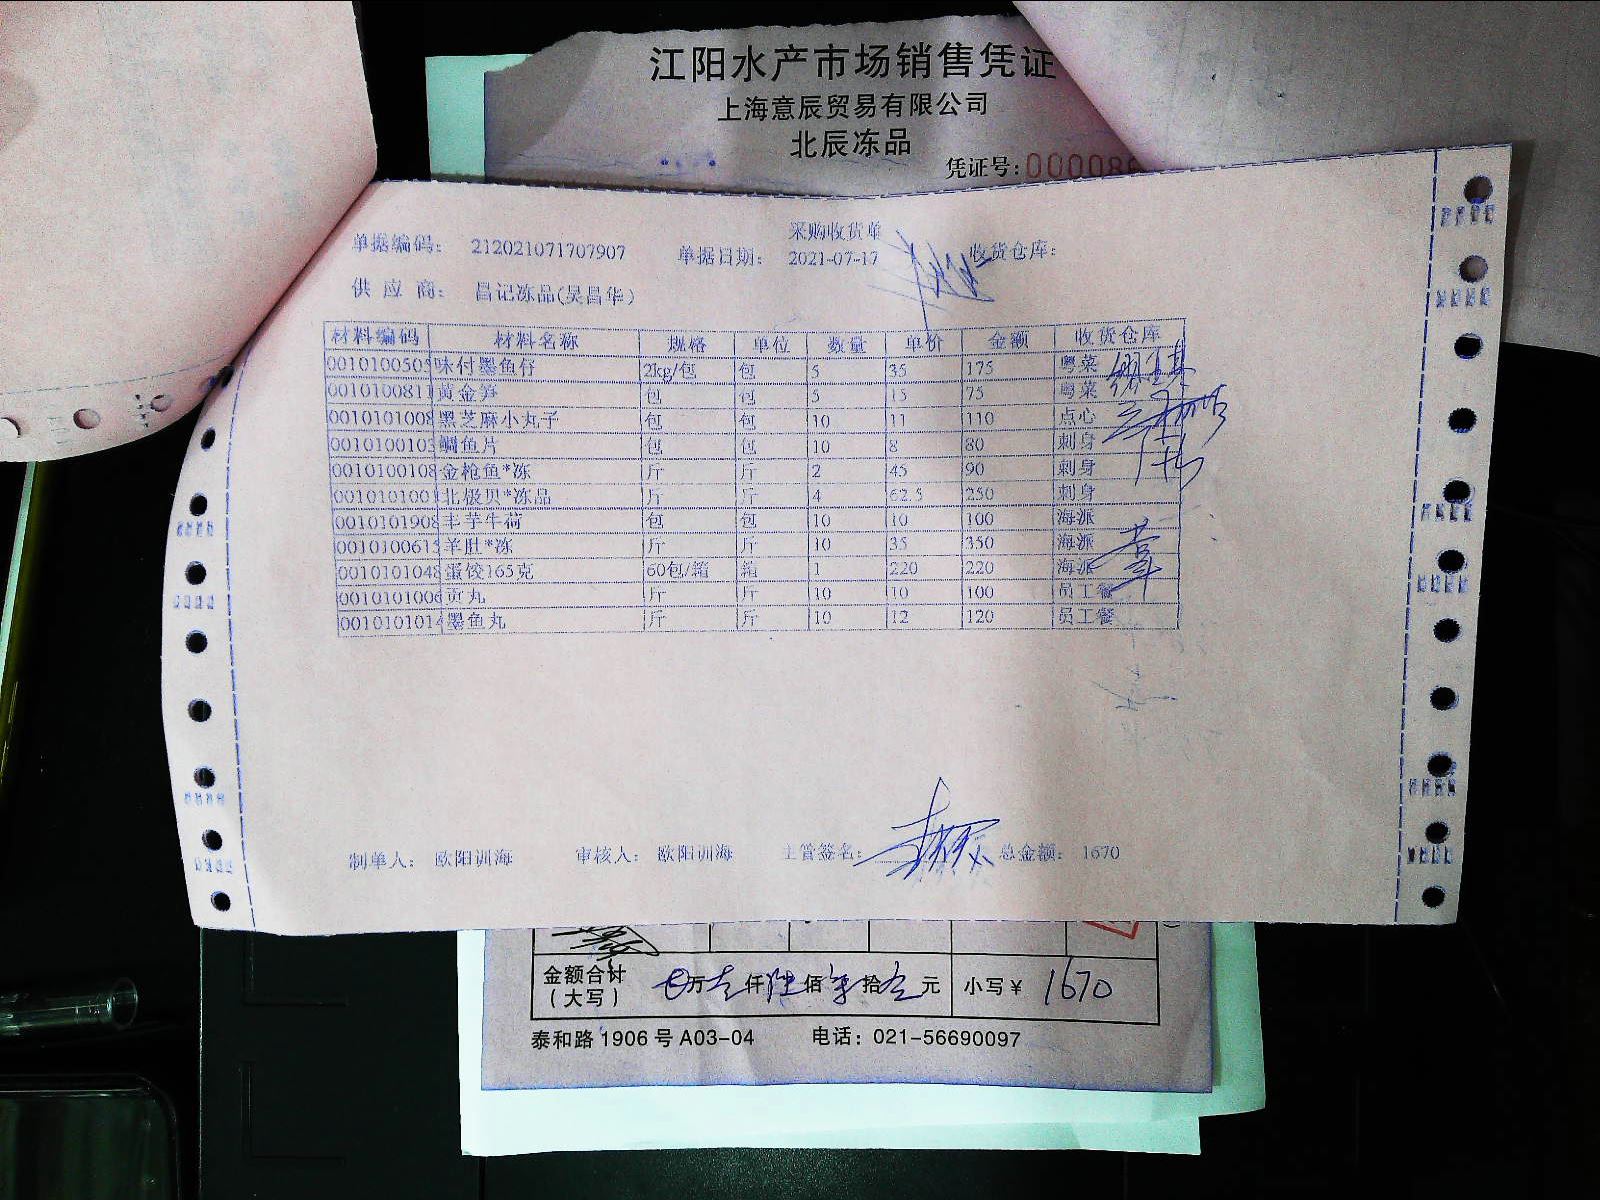 江阳水产市场销售凭证
上海意辰贸易有限公司
北辰冻品
凭证号:000008
采购收货单
单据编码: 212021071707907 单据日期: 2021-07-17 收货仓库:
供 应 商: 昌记冻品(吴昌华)
材料编码 材料名称 规格 单位 数量 单价 金额 收货仓库
0010100505 味付墨鱼仔 2kg/包 包 5 35 175 粤菜
0010100811 黄金笋 包 包 5 15 75 粤菜
0010101008 黑芝麻小丸子 包 包 10 11 110 点心
0010100103 鲷鱼片 包 包 10 8 80 刺身
0010100108 金枪鱼*冻 斤 斤 2 45 90 刺身
001010100 北极贝*冻品 斤 斤 4 62.5 250 刺身
0010101908 丰芋牛荷 包 包 10 10 100 海派
0010100615 羊肚*冻 斤 斤 10 35 350 海派
0010101048 蛋饺165克 60包/箱 箱 1 220 220 海派
0010101006 贡丸 斤 斤 10 10 100 员工餐
0010101014 墨鱼丸 斤 斤 10 12 120 员工餐
制单人: 欧阳训海 审核人: 欧阳训海 主管签名: 总金额: 1670
金额合计
(大写) 万 仟 佰 拾 元 小写¥ 1670
泰和路1906号A03-04 电话: 021-56690097